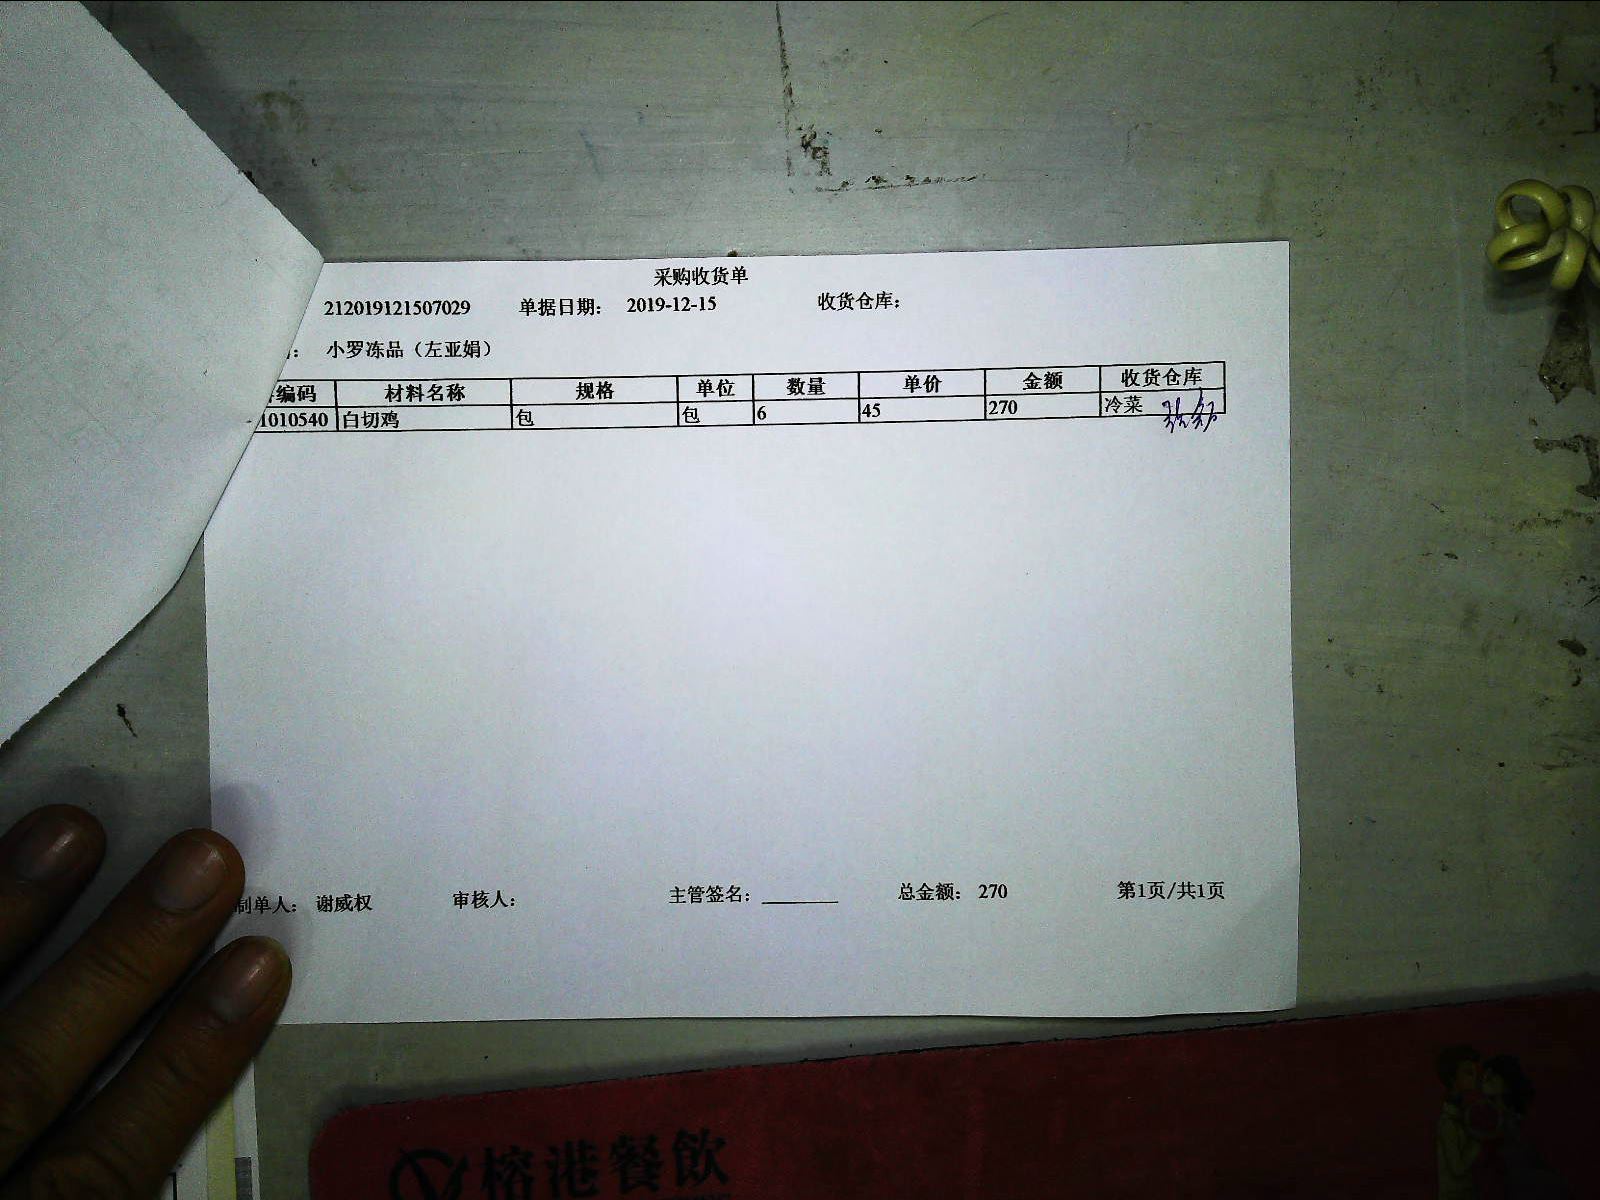 采购收货单
212019121507029 单据日期： 2019-12-15 收货仓库：
： 小罗冻品（左亚娟）
编码 材料名称 规格 单位 数量 单价 金额 收货仓库
1010540 白切鸡 包 包 6 45 270 冷菜
制单人： 谢威权 审核人： 主管签名： ________ 总金额： 270 第1页/共1页
榕港餐飲